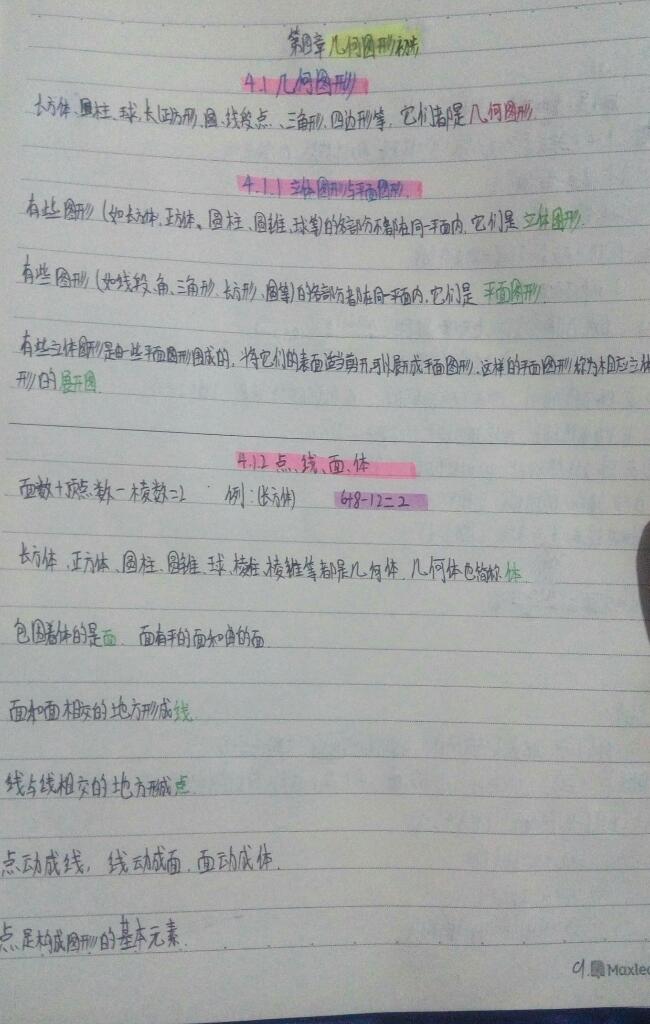 第四章 几何图形初步
4.1 几何图形
长方体、圆柱、球、长(正)方形、圆、线段、点、三角形、四边形等,它们都是几何图形.
4.1.1 立体图形与平面图形.
有些图形(如长方体、正方体、圆柱、圆锥、球等)的各部分不都在同一平面内,它们是立体图形.
有些图形(如线段、角、三角形、长方形、圆等)的各部分都在同一平面内,它们是平面图形.
有些立体图形是由一些平面图形围成的,将它们的表面适当剪开,可以展成平面图形.这样的平面图形称为相应立体
形的展开图.
4.1.2 点、线、面、体
面数+顶点数-棱数=2 例:(长方体) 6+8-12=2
长方体、正方体、圆柱、圆锥、球、棱柱、棱锥等都是几何体.几何体也简称体
包围着体的是面. 面有平的面和曲的面.
面和面相交的地方形成线.
线与线相交的地方形成点.
点动成线, 线动成面, 面动成体.
点是构成图形的基本元素.
9. Maxlea